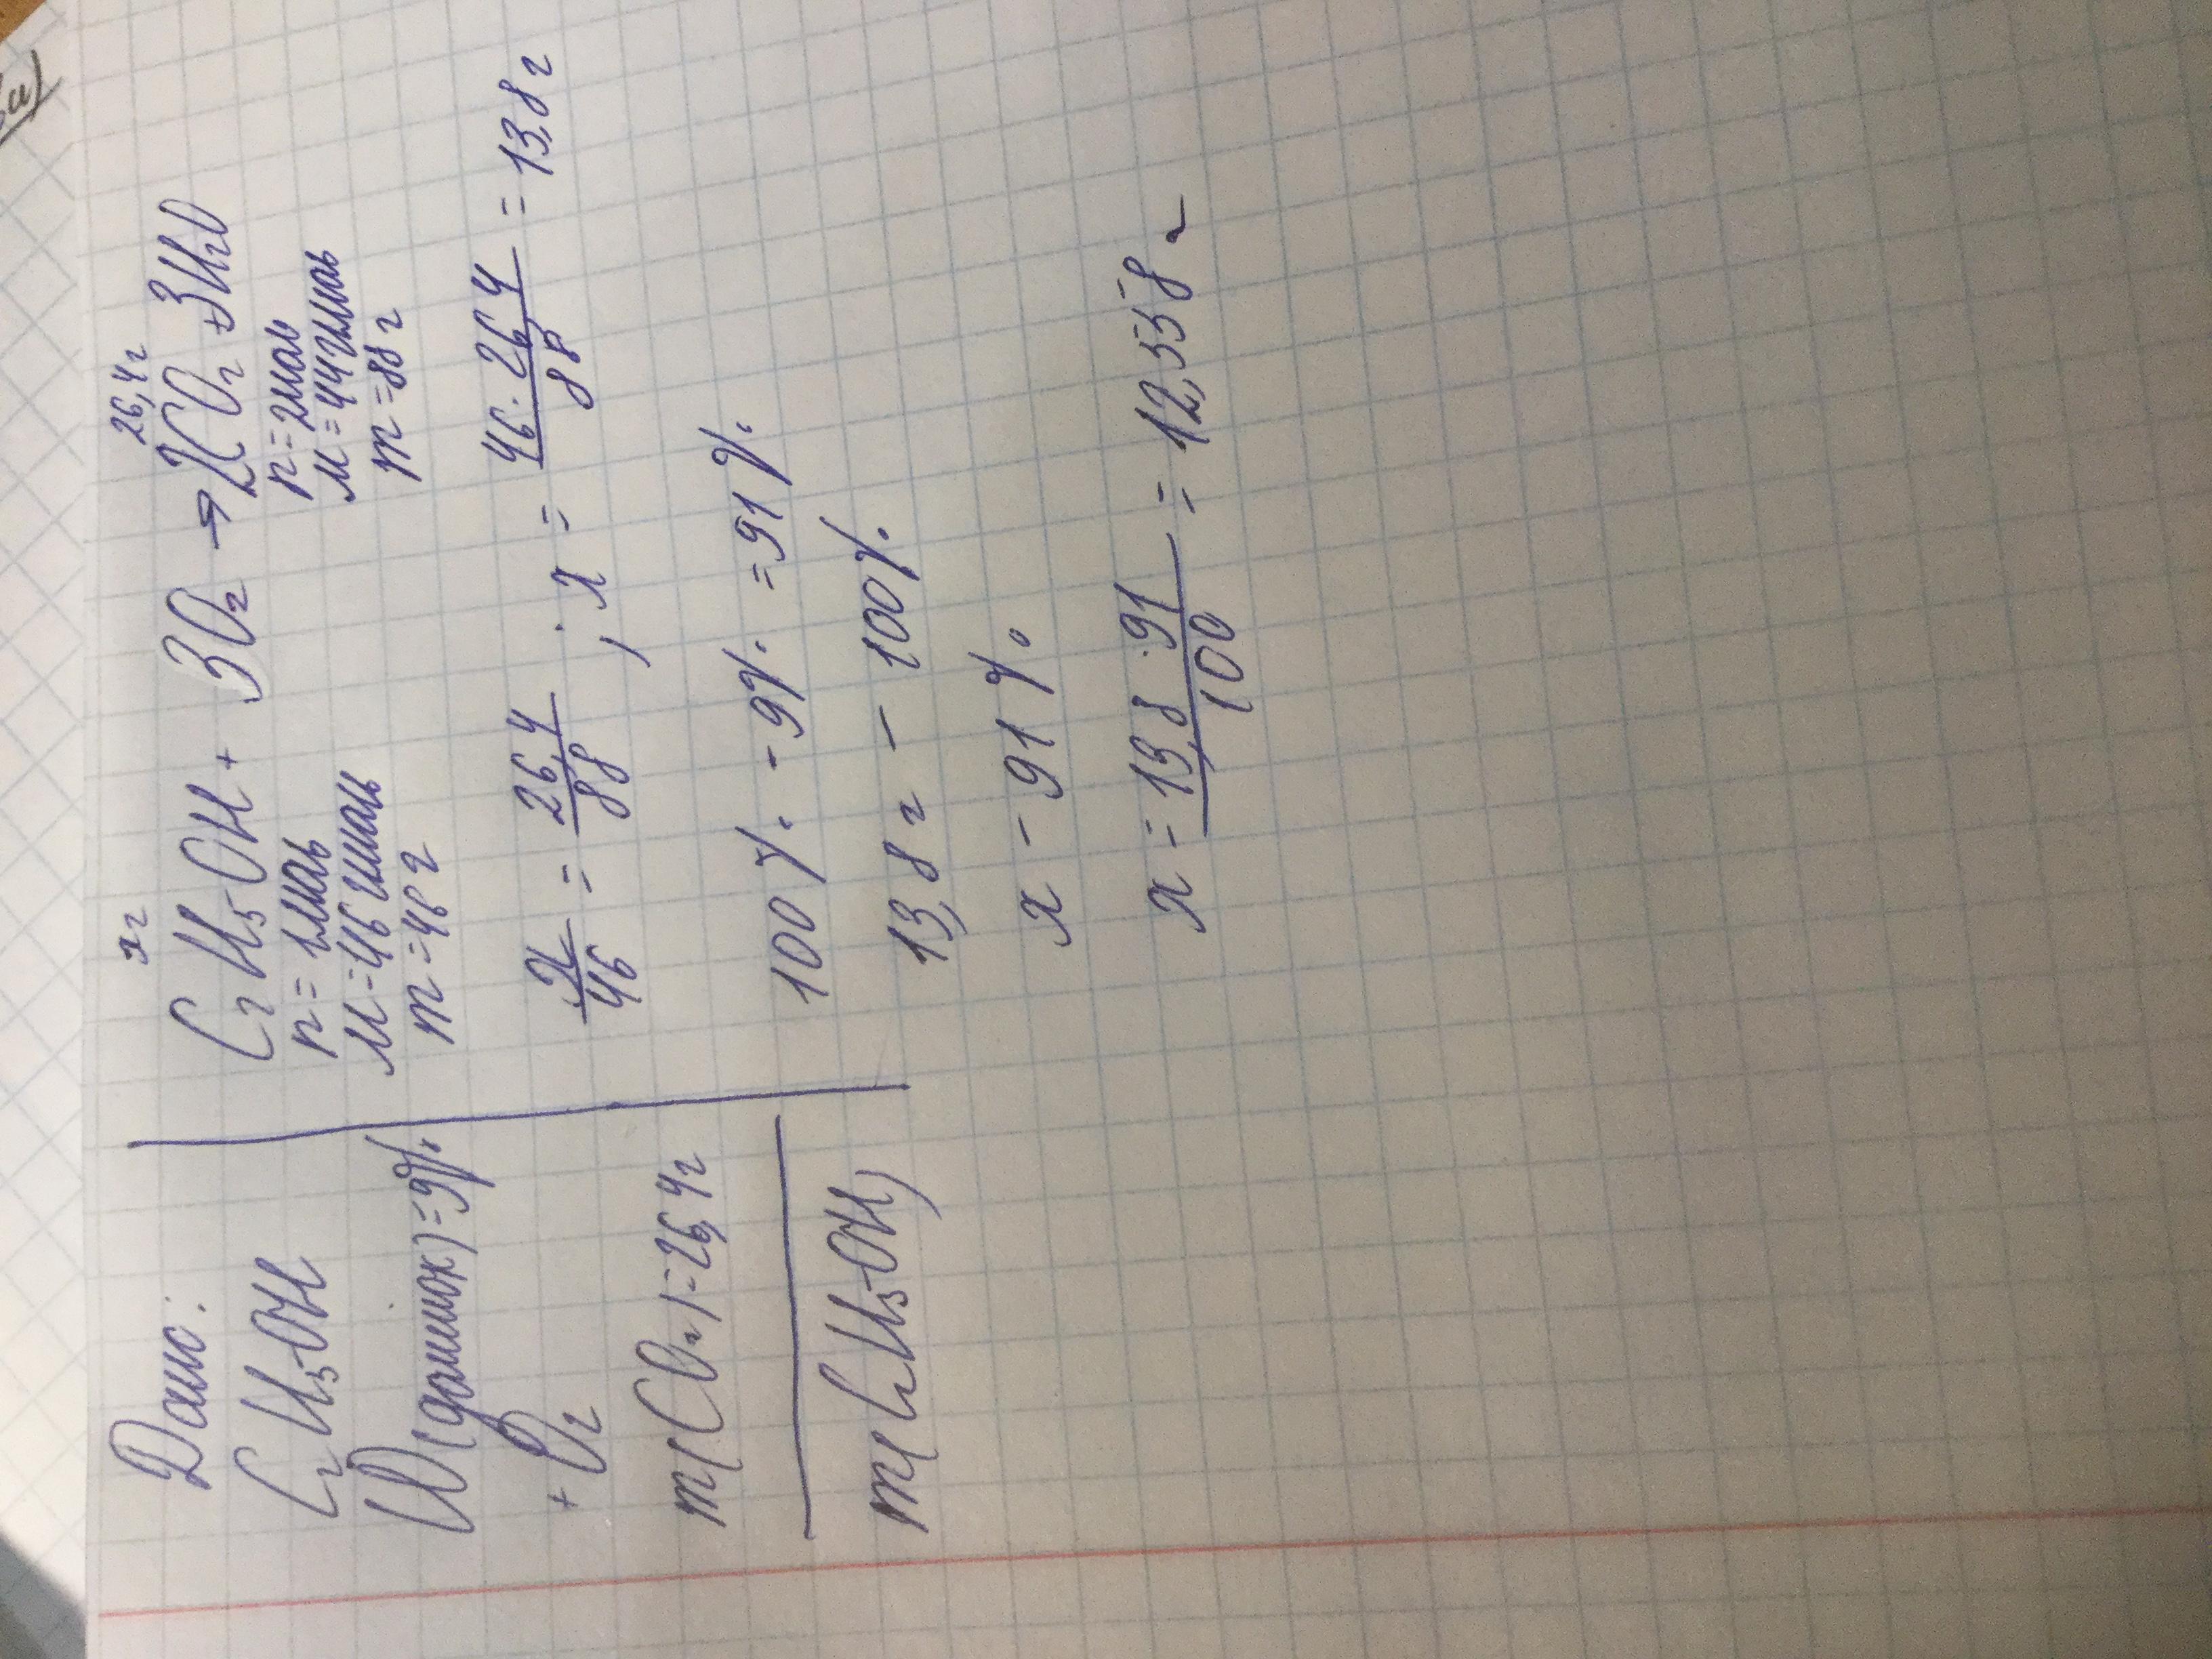 Дано:
C₂H₅OH
W(домшок)=9%
+ O₂
m(CO₂)=26,4г
m(C₂H₅OH)
xг 26,4г
C₂H₅OH + 3O₂ → 2CO₂ + 3H₂O
n=1моль n=2моль
M=46г/моль M=44г/моль
m=46г m=88г
x/46 = 26,4/88 ; x = 46·26,4/88 = 13,8г
100% - 9% = 91%
13,8г - 100%
x - 91%
x = 13,8·91/100 = 12,558г